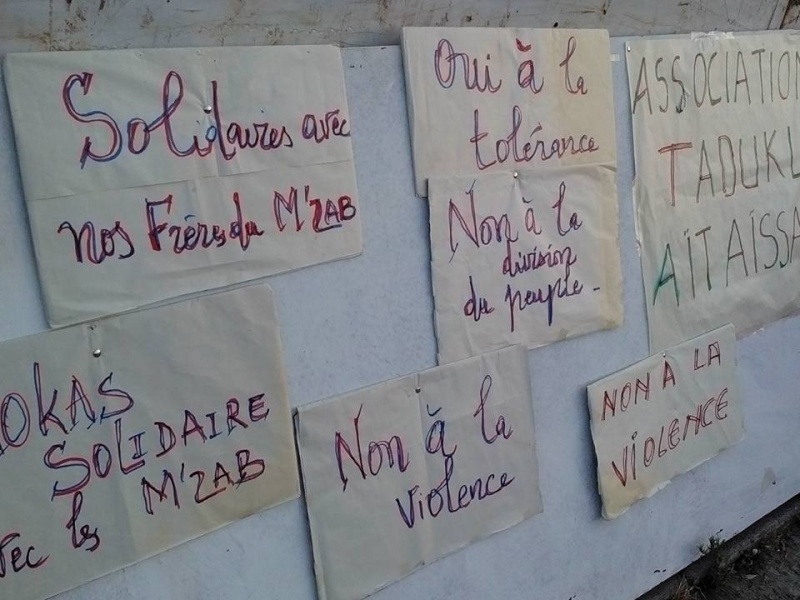 Solidaires avec
nos Frères du M'ZAB
Oui à la
tolérance
Non à la
division
du peuple -
ASSOCIATION
TADUKL
AÏT AÏSSA
OKAS
SOLIDAIRE
vec les M'ZAB
Non à la
violence
NON À LA
VIOLENCE